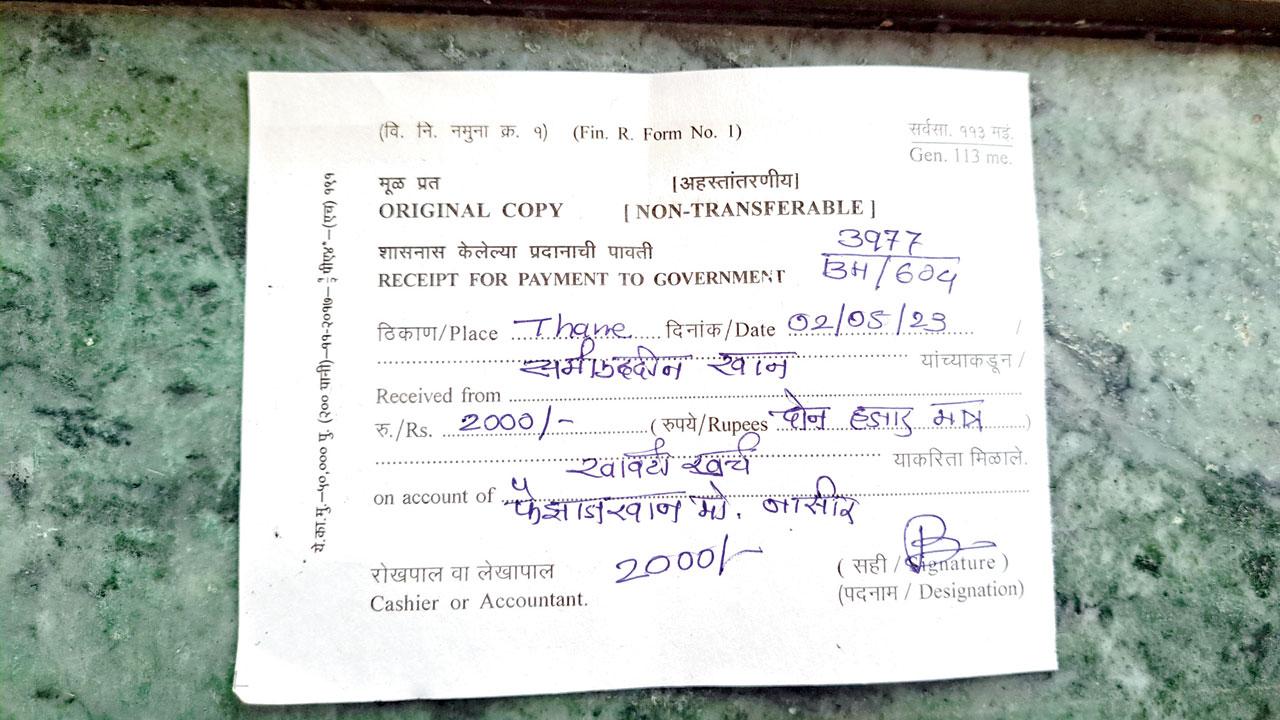 (वि. नि. नमुना क्र. १) (Fin. R. Form No. 1)
सर्वसा. ११३ मई.
Gen. 113 me.
मूळ प्रत [अहस्तांतरणीय]
ORIGINAL COPY [NON-TRANSFERABLE]
शासनास केलेल्या प्रदानाची पावती
RECEIPT FOR PAYMENT TO GOVERNMENT
3977
BH/604
ठिकाण/Place Thane दिनांक/Date 02/05/23 /
खान यांच्याकडून /
Received from
रु./Rs. 2000/- (रुपये/Rupees दोन हजार मात्र)
खावटी खर्च याकरिता मिळाले.
on account of
फैझानखान मो. नासीर
रोखपाल वा लेखापाल 2000/- (सही / Signature)
Cashier or Accountant. (पदनाम / Designation)